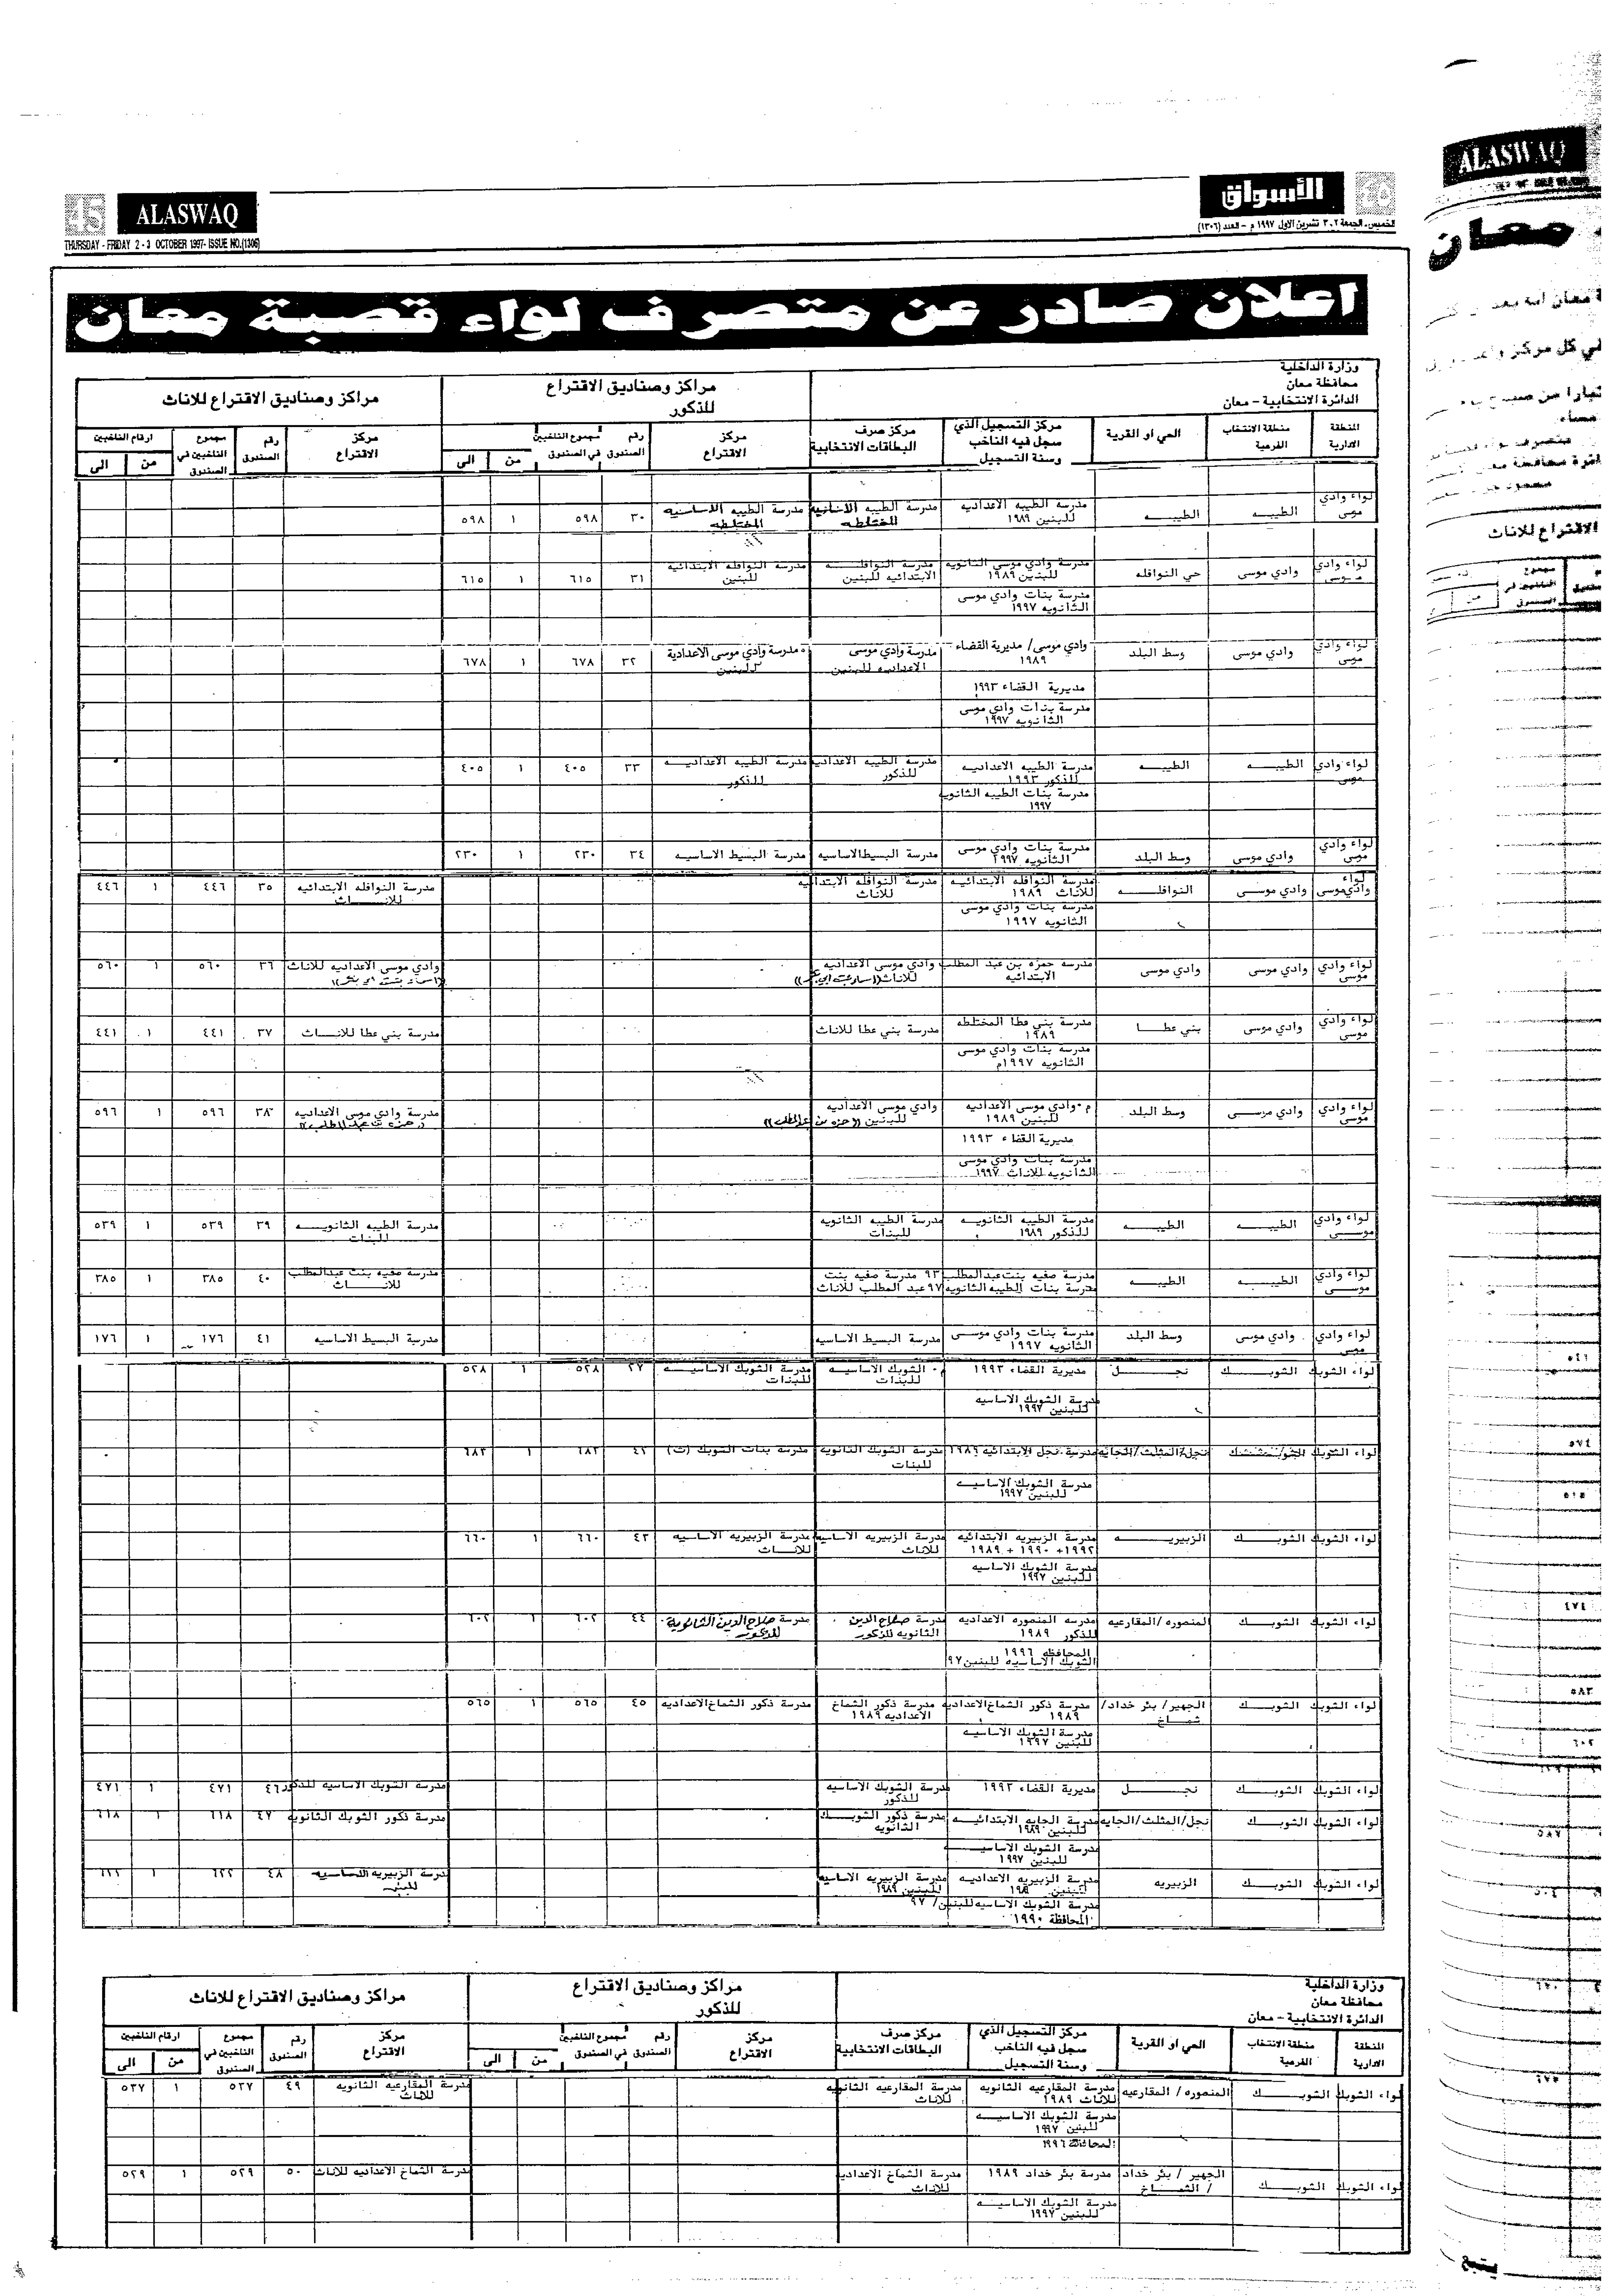 45 ALASWAQ الأسواق ٤٥
THURSDAY - FRIDAY 2 - 3 OCTOBER 1997- ISSUE NO.(1306)
الخميس، الجمعة ٢-٣ تشرين الاول ١٩٩٧ م - العدد (١٣٠٦)
اعلان صادر عن متصرف لواء قصبة معان
وزارة الداخلية
محافظة معان
الدائرة الانتخابية - معان
مراكز وصناديق الاقتراع للذكور
مراكز وصناديق الاقتراع للاناث
المنطقة الادارية
منطقة الانتخاب الفرعية
الحي او القرية
مركز التسجيل الذي سجل فيه الناخب وسنة التسجيل
مركز صرف البطاقات الانتخابية
مركز الاقتراع
رقم الصندوق
مجموع الناخبين في الصندوق
من
الى
مركز الاقتراع
رقم الصندوق
مجموع الناخبين في الصندوق
ارقام الناخبين
من
الى
لواء وادي موسى الطيبه الطيبه مدرسة الطيبه الاعداديه للبنين ١٩٨٩ مدرسة الطيبه الاساسيه المختلطه ٣٠ ٥٩٨ ١ ٥٩٨
لواء وادي موسى وادي موسى حي النوافله مدرسة وادي موسى الثانويه للبنين ١٩٨٩ مدرسة النوافله الابتدائيه للبنين مدرسة النوافله الابتدائيه للبنين ٣١ ٦١٥ ١ ٦١٥
مدرسة بنات وادي موسى الثانويه ١٩٩٧
لواء وادي موسى وادي موسى وسط البلد وادي موسى/ مديرية القضاء ١٩٨٩ مدرسة وادي موسى الاعداديه للبنين مدرسة وادي موسى الاعدادية للبنين ٣٢ ٦٧٨ ١ ٦٧٨
مديرية القضاء ١٩٩٣
مدرسة بنات وادي موسى الثانويه ١٩٩٧
لواء وادي موسى الطيبه الطيبه مدرسة الطيبه الاعداديه للذكور ١٩٩٣ مدرسة الطيبه الاعداديه للذكور مدرسة الطيبه الاعداديه للذكور ٣٣ ٤٠٥ ١ ٤٠٥
مدرسة بنات الطيبه الثانويه ١٩٩٧
لواء وادي موسى وادي موسى وسط البلد مدرسة بنات وادي موسى الثانويه ١٩٩٧ مدرسة البسيط الاساسيه مدرسة البسيط الاساسيه ٣٤ ٢٣٠ ١ ٢٣٠
لواء وادي موسى وادي موسى النوافله مدرسة النوافله الابتدائيه للاناث ١٩٨٩ مدرسة النوافله الابتدائيه للاناث مدرسة النوافله الابتدائيه للاناث ٣٥ ٤٤٦ ١ ٤٤٦
مدرسة بنات وادي موسى الثانويه ١٩٩٧
لواء وادي موسى وادي موسى وادي موسى مدرسة حمزه بن عبد المطلب الابتدائيه وادي موسى الاعداديه للاناث وادي موسى الاعداديه للاناث ٣٦ ٥٦٠ ١ ٥٦٠
لواء وادي موسى وادي موسى بني عطا مدرسة بني عطا المختلطه ١٩٨٩ مدرسة بني عطا للاناث مدرسة بني عطا للاناث ٣٧ ٤٤١ ١ ٤٤١
مدرسة بنات وادي موسى الثانويه ١٩٩٧م
لواء وادي موسى وادي موسى وسط البلد م٠وادي موسى الاعداديه للبنين ١٩٨٩ وادي موسى الاعداديه للبنين ((حمزه بن عبد المطلب)) مدرسة وادي موسى الاعداديه ((حمزه بن عبد المطلب)) ٣٨ ٥٩٦ ١ ٥٩٦
مديرية القضاء ١٩٩٣
مدرسة بنات وادي موسى الثانويه للاناث ١٩٩٧
لواء وادي موسى الطيبه الطيبه مدرسة الطيبه الثانويه للذكور ١٩٨٩ مدرسة الطيبه الثانويه للبنات مدرسة الطيبه الثانويه للبنات ٣٩ ٥٣٩ ١ ٥٣٩
لواء وادي موسى الطيبه الطيبه مدرسة صفيه بنت عبدالمطلب ٩٣ مدرسة بنات الطيبه الثانويه ٩٧ مدرسة صفيه بنت عبد المطلب للاناث مدرسة صفيه بنت عبدالمطلب للاناث ٤٠ ٣٨٥ ١ ٣٨٥
لواء وادي موسى وادي موسى وسط البلد مدرسة بنات وادي موسى الثانويه ١٩٩٧ مدرسة البسيط الاساسيه مدرسة البسيط الاساسيه ٤١ ١٧٦ ١ ١٧٦
لواء الشوبك الشوبك نجل مديرية القضاء ١٩٩٣ م٠ الشوبك الاساسيه للبنات مدرسة الشوبك الاساسيه للبنات ٢٧ ٥٢٨ ١ ٥٢٨
مدرسة الشوبك الاساسيه للبنين ١٩٩٧
لواء الشوبك الشوبك نجل/المثلث/الجايه مدرسة نجل الابتدائيه ١٩٨٩ مدرسة الشوبك الثانويه للبنات مدرسة بنات الشوبك (ث) ٤٢ ٦٨٢ ١ ٦٨٢
مدرسة الشوبك الاساسيه للبنين ١٩٩٧
لواء الشوبك الشوبك الزبيريه مدرسة الزبيريه الابتدائيه ١٩٨٩ + ١٩٩٠ +١٩٩٢ مدرسة الزبيريه الاساسيه للاناث مدرسة الزبيريه الاساسيه للاناث ٤٣ ٦٦٠ ١ ٦٦٠
مدرسة الشوبك الاساسيه للبنين ١٩٩٧
لواء الشوبك الشوبك المنصوره /المقارعيه مدرسه المنصوره الاعداديه للذكور ١٩٨٩ مدرسة صلاح الدين الثانويه للذكور مدرسة صلاح الدين الثانوية للذكور ٤٤ ٦٠٢ ١ ٦٠٢
المحافظه ١٩٩٦
الشوبك الاساسيه للبنين٩٧
لواء الشوبك الشوبك الجهير/ بئر خداد/ شماخ مدرسة ذكور الشماخ الاعداديه ١٩٨٩ مدرسة ذكور الشماخ الاعداديه ١٩٨٩ مدرسة ذكور الشماخ الاعداديه ٤٥ ٥٦٥ ١ ٥٦٥
مدرسة الشوبك الاساسيه للبنين ١٩٩٧
لواء الشوبك الشوبك نجل مديرية القضاء ١٩٩٣ مدرسة الشوبك الاساسيه للذكور مدرسة الشوبك الاساسيه للذكور ٤٦ ٤٧١ ١ ٤٧١
لواء الشوبك الشوبك نجل/المثلث/الجايه مدرسة الجايه الابتدائيه للبنين ١٩٨٩ مدرسة ذكور الشوبك الثانويه مدرسة ذكور الشوبك الثانويه ٤٧ ٦١٨ ١ ٦١٨
مدرسة الشوبك الاساسيه للبنين ١٩٩٧
لواء الشوبك الشوبك الزبيريه مدرسة الزبيريه الاعداديه للبنين مدرسة الزبيريه الاساسيه للبنين ١٩٨٩ مدرسة الزبيريه الاساسيه للبنين ٤٨ ٦٢٢ ١ ٦٢٢
مدرسة الشوبك الاساسيه للبنين/ ٩٧
المحافظة ١٩٩٠
وزارة الداخلية
محافظة معان
الدائرة الانتخابية - معان
مراكز وصناديق الاقتراع للذكور
مراكز وصناديق الاقتراع للاناث
المنطقة الادارية
منطقة الانتخاب الفرعية
الحي او القرية
مركز التسجيل الذي سجل فيه الناخب وسنة التسجيل
مركز صرف البطاقات الانتخابية
مركز الاقتراع
رقم الصندوق
مجموع الناخبين في الصندوق
من
الى
مركز الاقتراع
رقم الصندوق
مجموع الناخبين في الصندوق
ارقام الناخبين
من
الى
لواء الشوبك الشوبك المنصوره / المقارعيه مدرسة المقارعيه الثانويه للاناث ١٩٨٩ مدرسة المقارعيه الثانويه للاناث مدرسة المقارعيه الثانويه للاناث ٤٩ ٥٣٧ ١ ٥٣٧
مدرسة الشوبك الاساسيه للبنين ١٩٩٧
المحافظة ١٩٩٦
لواء الشوبك الشوبك الجهير / بئر خداد / الشماخ مدرسة بئر خداد ١٩٨٩ مدرسة الشماخ الاعداديه للاناث مدرسة الشماخ الاعداديه للاناث ٥٠ ٥٢٩ ١ ٥٢٩
مدرسة الشوبك الاساسيه للبنين ١٩٩٧
ALASWAQ
معان
الاقتراع للاناث
يتبع